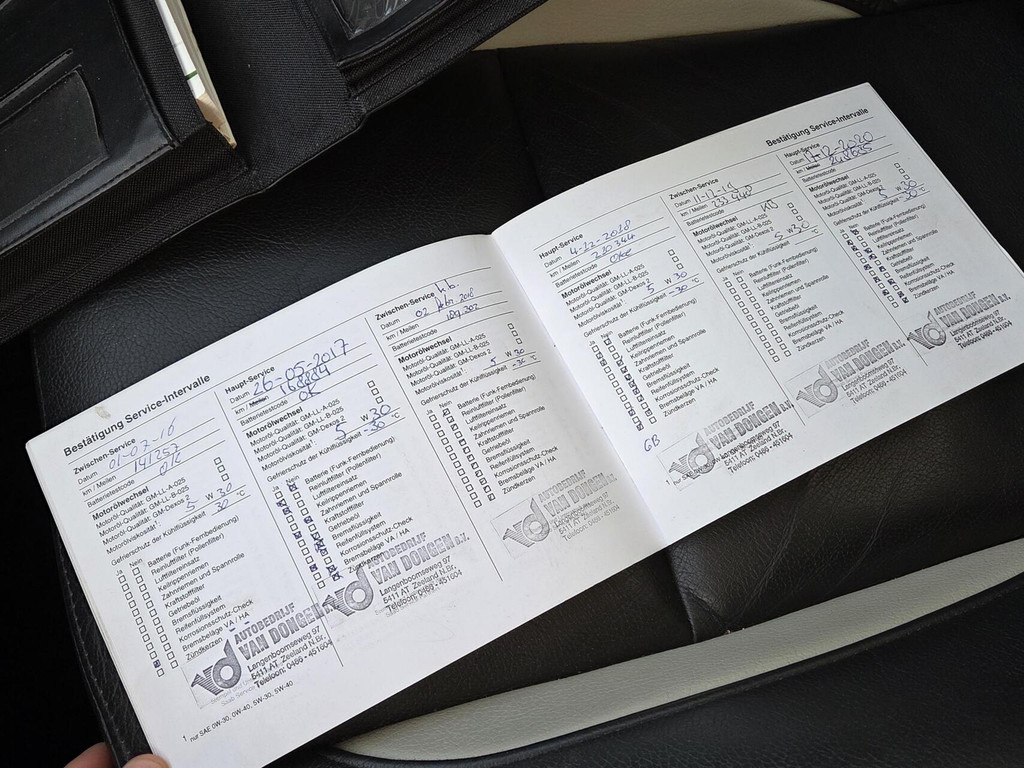 Bestätigung Service-Intervalle
Zwischen-Service
Datum 01-02-16
km / Meilen 141257
Batterietestcode OK
Motorölwechsel
Motoröl-Qualität: GM-LL-A-025
Motoröl-Qualität: GM-LL-B-025
Motoröl-Qualität: GM-Dexos 2
Motorölviskosität¹ 5 W 30
Gefrierschutz der Kühlflüssigkeit 30 °C
Ja Nein
Batterie (Funk-Fernbedienung)
Reinluftfilter (Pollenfilter)
Luftfiltereinsatz
Keilrippenriemen
Zahnriemen und Spannrolle
Kraftstofffilter
Getriebeöl
Bremsflüssigkeit
Reifenfüllsystem
Korrosionsschutz-Check
Bremsbeläge VA / HA
Zündkerzen
AUTOBEDRIJF
VAN DONGEN B.V.
Langenboomseweg 97
5411 AT Zeeland N.Br.
Telefoon: 0486 - 451604
¹ nur SAE 0W-30, 0W-40, 5W-30, 5W-40
Haupt-Service
Datum 26-05-2017
km / Meilen
Batterietestcode OK
Motorölwechsel
Motoröl-Qualität: GM-LL-A-025
Motoröl-Qualität: GM-LL-B-025
Motoröl-Qualität: GM-Dexos 2
Motorölviskosität¹ 5 W 30
Gefrierschutz der Kühlflüssigkeit -30 °C
Ja Nein
Batterie (Funk-Fernbedienung)
Reinluftfilter (Pollenfilter)
Luftfiltereinsatz
Keilrippenriemen
Zahnriemen und Spannrolle
Kraftstofffilter
Getriebeöl
Bremsflüssigkeit
Reifenfüllsystem
Korrosionsschutz-Check
Bremsbeläge VA / HA
Zündkerzen
AUTOBEDRIJF
VAN DONGEN B.V.
Langenboomseweg 97
5411 AT Zeeland N.Br.
Telefoon: 0486 - 451604
Zwischen-Service
Datum 02 2018
km / Meilen 189.302
Batterietestcode
Motorölwechsel
Motoröl-Qualität: GM-LL-A-025
Motoröl-Qualität: GM-LL-B-025
Motoröl-Qualität: GM-Dexos 2
Motorölviskosität¹ 5 W 30
Gefrierschutz der Kühlflüssigkeit -30 °C
Ja Nein
Batterie (Funk-Fernbedienung)
Reinluftfilter (Pollenfilter)
Luftfiltereinsatz
Keilrippenriemen
Zahnriemen und Spannrolle
Kraftstofffilter
Getriebeöl
Bremsflüssigkeit
Reifenfüllsystem
Korrosionsschutz-Check
Bremsbeläge VA / HA
Zündkerzen
AUTOBEDRIJF
VAN DONGEN B.V.
Langenboomseweg 97
5411 AT Zeeland N.Br.
Telefoon: 0486 - 451604
Bestätigung Service-Intervalle
Haupt-Service
Datum 4-12-2018
km / Meilen 210344
Batterietestcode Oke
Motorölwechsel
Motoröl-Qualität: GM-LL-A-025
Motoröl-Qualität: GM-LL-B-025
Motoröl-Qualität: GM-Dexos 2
Motorölviskosität¹ 5 W 30
Gefrierschutz der Kühlflüssigkeit -30 °C
Ja Nein
Batterie (Funk-Fernbedienung)
Reinluftfilter (Pollenfilter)
Luftfiltereinsatz
Keilrippenriemen
Zahnriemen und Spannrolle
Kraftstofffilter
Getriebeöl
Bremsflüssigkeit
Reifenfüllsystem
Korrosionsschutz-Check
Bremsbeläge VA / HA
Zündkerzen
GB
AUTOBEDRIJF
VAN DONGEN B.V.
Langenboomseweg 97
5411 AT Zeeland N.Br.
Telefoon: 0486 - 451604
¹ nur SAE
Zwischen-Service
Datum 11-12-19
km / Meilen 233.440
Batterietestcode
Motorölwechsel
Motoröl-Qualität: GM-LL-A-025
Motoröl-Qualität: GM-LL-B-025
Motoröl-Qualität: GM-Dexos 2
Motorölviskosität¹ 5 W 30
Gefrierschutz der Kühlflüssigkeit °C
Ja Nein
Batterie (Funk-Fernbedienung)
Reinluftfilter (Pollenfilter)
Luftfiltereinsatz
Keilrippenriemen
Zahnriemen und Spannrolle
Kraftstofffilter
Getriebeöl
Bremsflüssigkeit
Reifenfüllsystem
Korrosionsschutz-Check
Bremsbeläge VA / HA
Zündkerzen
AUTOBEDRIJF
VAN DONGEN B.V.
Langenboomseweg 97
5411 AT Zeeland N.Br.
Telefoon: 0486 - 451604
Haupt-Service
Datum 17-12-2020
km / Meilen 248685
Batterietestcode
Motorölwechsel
Motoröl-Qualität: GM-LL-A-025
Motoröl-Qualität: GM-LL-B-025
Motoröl-Qualität: GM-Dexos 2
Motorölviskosität¹ 5 W 30
Gefrierschutz der Kühlflüssigkeit -30 °C
Ja Nein
Batterie (Funk-Fernbedienung)
Reinluftfilter (Pollenfilter)
Luftfiltereinsatz
Keilrippenriemen
Zahnriemen und Spannrolle
Kraftstofffilter
Getriebeöl
Bremsflüssigkeit
Reifenfüllsystem
Korrosionsschutz-Check
Bremsbeläge VA / HA
Zündkerzen
AUTOBEDRIJF
VAN DONGEN B.V.
Langenboomseweg 97
5411 AT Zeeland N.Br.
Telefoon: 0486 - 451604